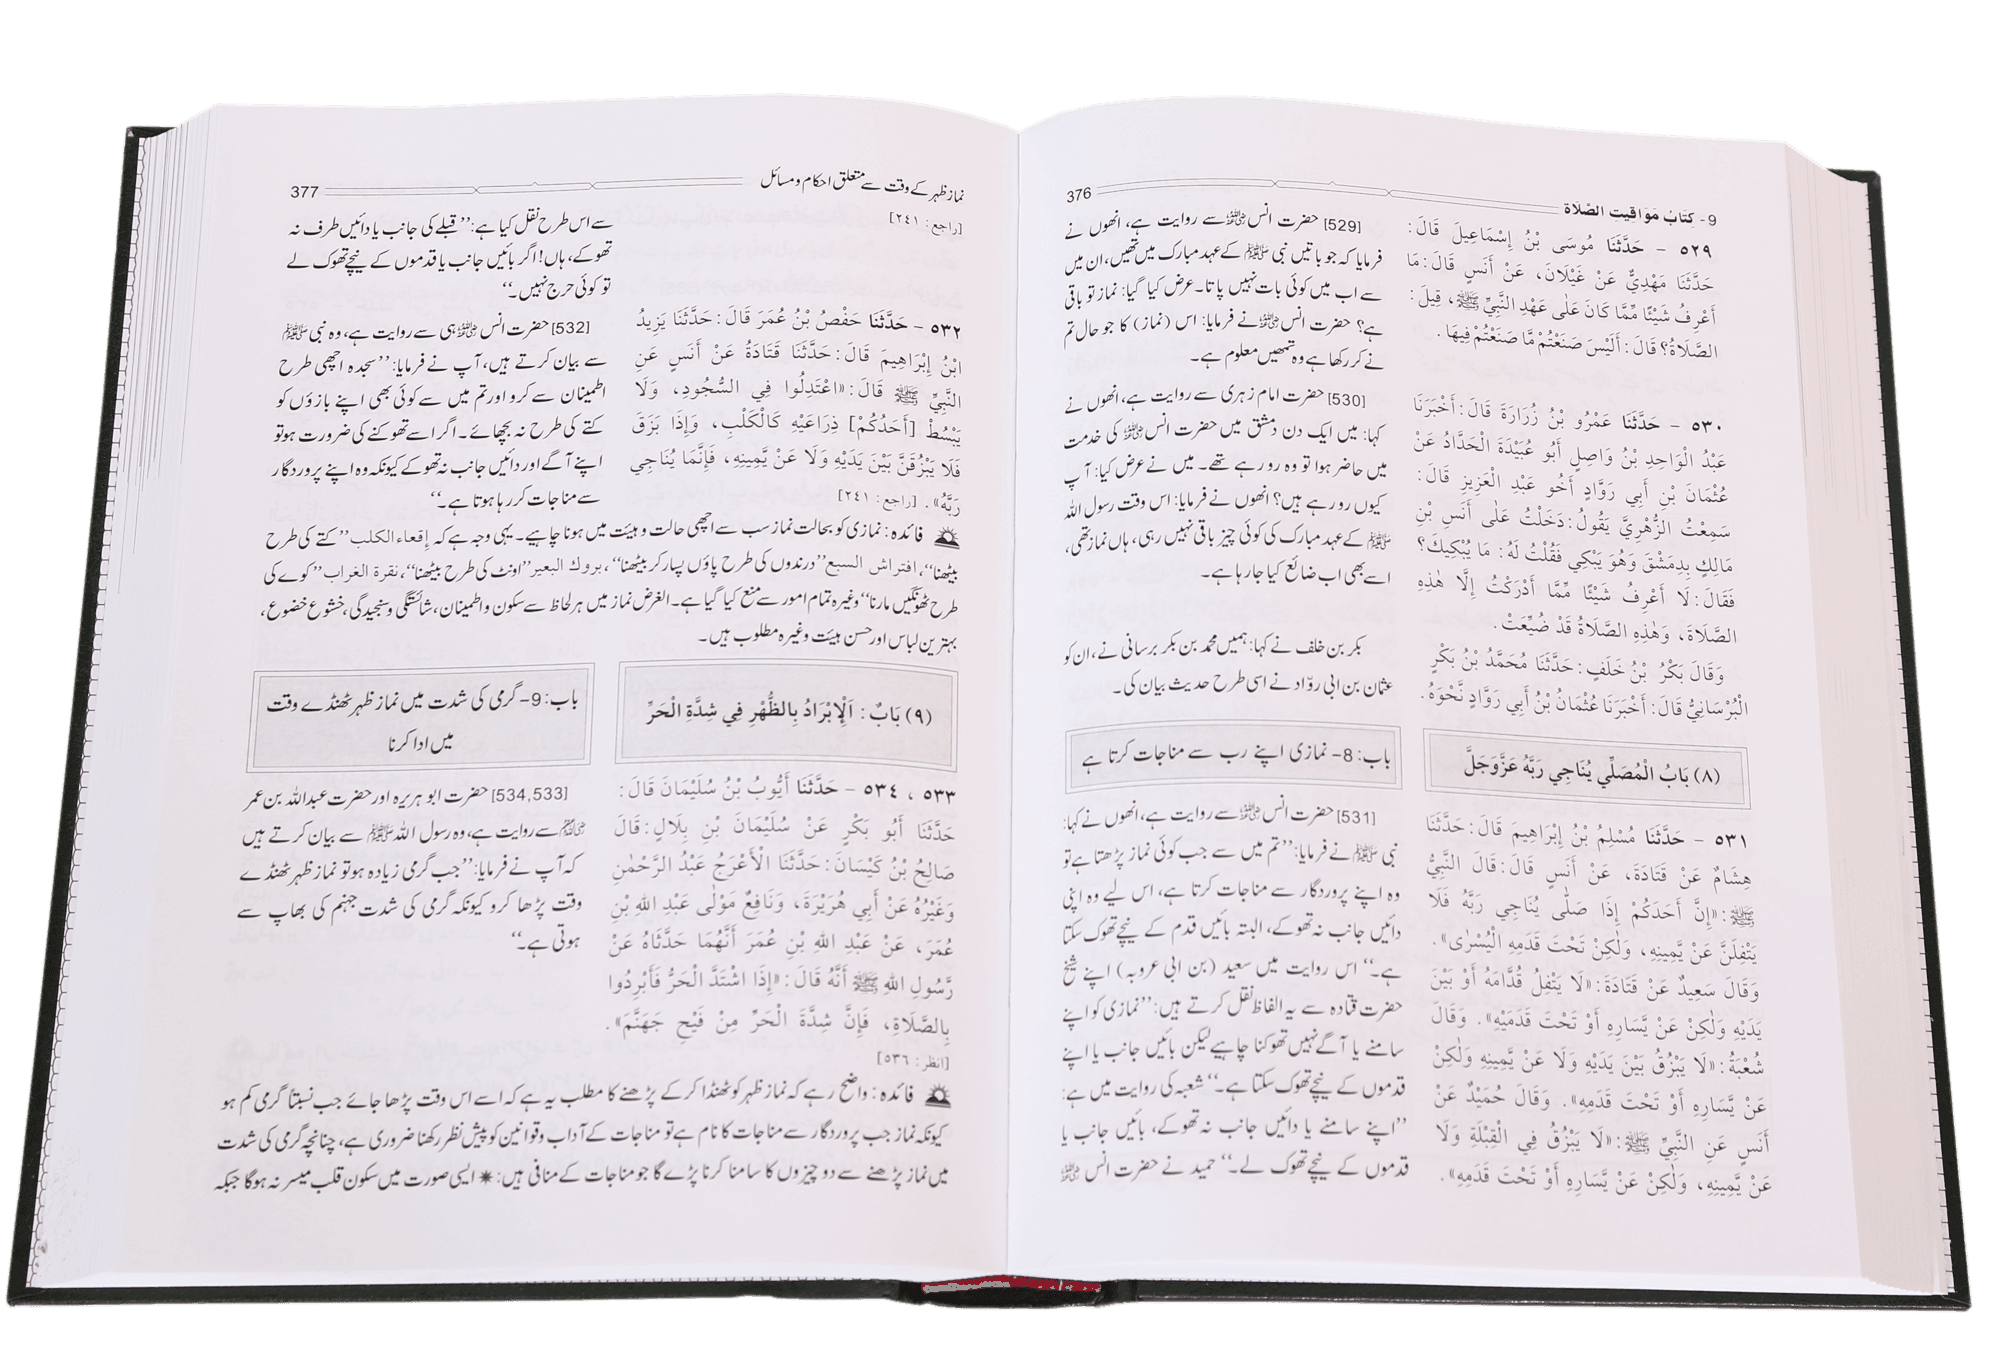 9- كِتَابُ مَوَاقِيتِ الصَّلَاة
376
٥٢٩ - حَدَّثَنَا مُوسَى بْنُ إِسْمَاعِيلَ قَالَ:
حَدَّثَنَا مَهْدِيٌّ عَنْ غَيْلَانَ، عَنْ أَنَسٍ قَالَ: مَا
أَعْرِفُ شَيْئًا مِّمَّا كَانَ عَلَى عَهْدِ النَّبِيِّ ﷺ، قِيلَ:
الصَّلَاةُ؟ قَالَ: أَلَيْسَ صَنَعْتُمْ مَّا صَنَعْتُمْ فِيهَا.
٥٣٠ - حَدَّثَنَا عَمْرُو بْنُ زُرَارَةَ قَالَ: أَخْبَرَنَا
عَبْدُ الْوَاحِدِ بْنُ وَاصِلٍ أَبُو عُبَيْدَةَ الْحَدَّادُ عَنْ
عُثْمَانَ بْنِ أَبِي رَوَّادٍ أَخُو عَبْدِ الْعَزِيزِ قَالَ:
سَمِعْتُ الزُّهْرِيَّ يَقُولُ: دَخَلْتُ عَلَى أَنَسِ بْنِ
مَالِكٍ بِدِمَشْقَ وَهُوَ يَبْكِي فَقُلْتُ لَهُ: مَا يُبْكِيكَ؟
فَقَالَ: لَا أَعْرِفُ شَيْئًا مِّمَّا أَدْرَكْتُ إِلَّا هَٰذِهِ
الصَّلَاةَ، وَهَٰذِهِ الصَّلَاةُ قَدْ ضُيِّعَتْ.
وَقَالَ بَكْرُ بْنُ خَلَفٍ: حَدَّثَنَا مُحَمَّدُ بْنُ بَكْرٍ
الْبُرْسَانِيُّ قَالَ: أَخْبَرَنَا عُثْمَانُ بْنُ أَبِي رَوَّادٍ نَّحْوَهُ.
(٨) بَابُ الْمُصَلِّي يُنَاجِي رَبَّهُ عَزَّ وَجَلَّ
٥٣١ - حَدَّثَنَا مُسْلِمُ بْنُ إِبْرَاهِيمَ قَالَ: حَدَّثَنَا
هِشَامٌ عَنْ قَتَادَةَ، عَنْ أَنَسٍ قَالَ: قَالَ النَّبِيُّ
ﷺ: «إِنَّ أَحَدَكُمْ إِذَا صَلَّى يُنَاجِي رَبَّهُ فَلَا
يَتْفِلَنَّ عَنْ يَّمِينِهِ، وَلٰكِنْ تَحْتَ قَدَمِهِ الْيُسْرٰى».
وَقَالَ سَعِيدٌ عَنْ قَتَادَةَ: «لَا يَتْفِلُ قُدَّامَهُ أَوْ بَيْنَ
يَدَيْهِ وَلٰكِنْ عَنْ يَّسَارِهِ أَوْ تَحْتَ قَدَمَيْهِ». وَقَالَ
شُعْبَةُ: «لَا يَبْزُقُ بَيْنَ يَدَيْهِ وَلَا عَنْ يَّمِينِهِ وَلٰكِنْ
عَنْ يَّسَارِهِ أَوْ تَحْتَ قَدَمِهِ». وَقَالَ حُمَيْدٌ عَنْ
أَنَسٍ عَنِ النَّبِيِّ ﷺ: «لَا يَبْزُقُ فِي الْقِبْلَةِ وَلَا
عَنْ يَّمِينِهِ، وَلٰكِنْ عَنْ يَّسَارِهِ أَوْ تَحْتَ قَدَمِهِ».
[529] حضرت انس ؓ سے روایت ہے، انھوں نے
فرمایا کہ جو باتیں نبی ﷺ کے عہد مبارک میں تھیں، ان میں
سے اب میں کوئی بات نہیں پاتا۔ عرض کیا گیا: نماز تو باقی
ہے؟ حضرت انس ؓ نے فرمایا: اس (نماز) کا جو حال تم
نے کر رکھا ہے وہ تمھیں معلوم ہے۔
[530] حضرت امام زہری سے روایت ہے، انھوں نے
کہا: میں ایک دن دمشق میں حضرت انس ؓ کی خدمت
میں حاضر ہوا تو وہ رو رہے تھے۔ میں نے عرض کیا: آپ
کیوں رو رہے ہیں؟ انھوں نے فرمایا: اس وقت رسول اللہ
ﷺ کے عہد مبارک کی کوئی چیز باقی نہیں رہی، ہاں نماز تھی،
اسے بھی اب ضائع کیا جا رہا ہے۔
بکر بن خلف نے کہا: ہمیں محمد بن بکر برسانی نے، ان کو
عثمان بن ابی روّاد نے اسی طرح حدیث بیان کی۔
باب: 8- نمازی اپنے رب سے مناجات کرتا ہے
[531] حضرت انس ؓ سے روایت ہے، انھوں نے کہا:
نبی ﷺ نے فرمایا: ’’تم میں سے جب کوئی نماز پڑھتا ہے تو
وہ اپنے پروردگار سے مناجات کرتا ہے، اس لیے وہ اپنی
دائیں جانب نہ تھوکے، البتہ بائیں قدم کے نیچے تھوک سکتا
ہے۔‘‘ اس روایت میں سعید (بن ابی عروبہ) اپنے شیخ
حضرت قتادہ سے یہ الفاظ نقل کرتے ہیں: ’’نمازی کو اپنے
سامنے یا آگے نہیں تھوکنا چاہیے لیکن بائیں جانب یا اپنے
قدموں کے نیچے تھوک سکتا ہے۔‘‘ شعبہ کی روایت میں ہے:
’’اپنے سامنے یا دائیں جانب نہ تھوکے، بائیں جانب یا
قدموں کے نیچے تھوک لے۔‘‘ حمید نے حضرت انس ؓ
نماز ظہر کے وقت سے متعلق احکام و مسائل
377
[راجع: ٢٤١]
٥٣٢ - حَدَّثَنَا حَفْصُ بْنُ عُمَرَ قَالَ: حَدَّثَنَا يَزِيدُ
ابْنُ إِبْرَاهِيمَ قَالَ: حَدَّثَنَا قَتَادَةُ عَنْ أَنَسٍ عَنِ
النَّبِيِّ ﷺ قَالَ: «اعْتَدِلُوا فِي السُّجُودِ، وَلَا
يَبْسُطْ [أَحَدُكُمْ] ذِرَاعَيْهِ كَالْكَلْبِ، وَإِذَا بَزَقَ
فَلَا يَبْزُقَنَّ بَيْنَ يَدَيْهِ وَلَا عَنْ يَّمِينِهِ، فَإِنَّمَا يُنَاجِي
رَبَّهُ». [راجع: ٢٤١]
سے اس طرح نقل کیا ہے: ’’قبلے کی جانب یا دائیں طرف نہ
تھوکے، ہاں! اگر بائیں جانب یا قدموں کے نیچے تھوک لے
تو کوئی حرج نہیں۔‘‘
[532] حضرت انس ؓ ہی سے روایت ہے، وہ نبی ﷺ
سے بیان کرتے ہیں، آپ نے فرمایا: ’’سجدہ اچھی طرح
اطمینان سے کرو اور تم میں سے کوئی بھی اپنے بازؤں کو
کتے کی طرح نہ بچھائے۔ اگر اسے تھوکنے کی ضرورت ہو تو
اپنے آگے اور دائیں جانب نہ تھوکے کیونکہ وہ اپنے پروردگار
سے مناجات کر رہا ہوتا ہے۔‘‘
فائدہ: نمازی کو بحالت نماز سب سے اچھی حالت و ہیئت میں ہونا چاہیے۔ یہی وجہ ہے کہ إقعاء الكلب ’’کتے کی طرح
بیٹھنا‘‘، افتراش السبع ’’درندوں کی طرح پاؤں پسار کر بیٹھنا‘‘، بروك البعير ’’اونٹ کی طرح بیٹھنا‘‘، نقرة الغراب ’’کوے کی
طرح ٹھونگیں مارنا‘‘ وغیرہ تمام امور سے منع کیا گیا ہے۔ الغرض نماز میں ہر لحاظ سے سکون و اطمینان، شائستگی و سنجیدگی، خشوع خضوع،
بہترین لباس اور حسن ہیئت وغیرہ مطلوب ہیں۔
(٩) بَابٌ: اَلْإِبْرَادُ بِالظُّهْرِ فِي شِدَّةِ الْحَرِّ
باب: 9- گرمی کی شدت میں نماز ظہر ٹھنڈے وقت
میں ادا کرنا
٥٣٣ ، ٥٣٤ - حَدَّثَنَا أَيُّوبُ بْنُ سُلَيْمَانَ قَالَ:
حَدَّثَنَا أَبُو بَكْرٍ عَنْ سُلَيْمَانَ بْنِ بِلَالٍ: قَالَ
صَالِحُ بْنُ كَيْسَانَ: حَدَّثَنَا الْأَعْرَجُ عَبْدُ الرَّحْمٰنِ
وَغَيْرُهُ عَنْ أَبِي هُرَيْرَةَ، وَنَافِعٌ مَوْلٰى عَبْدِ اللهِ بْنِ
عُمَرَ، عَنْ عَبْدِ اللهِ بْنِ عُمَرَ أَنَّهُمَا حَدَّثَاهُ عَنْ
رَّسُولِ اللهِ ﷺ أَنَّهُ قَالَ: «إِذَا اشْتَدَّ الْحَرُّ فَأَبْرِدُوا
بِالصَّلَاةِ، فَإِنَّ شِدَّةَ الْحَرِّ مِنْ فَيْحِ جَهَنَّمَ».
[انظر: ٥٣٦]
[534,533] حضرت ابو ہریرہ اور حضرت عبداللہ بن عمر
ؓ سے روایت ہے، وہ رسول اللہ ﷺ سے بیان کرتے ہیں
کہ آپ نے فرمایا: ’’جب گرمی زیادہ ہو تو نماز ظہر ٹھنڈے
وقت پڑھا کرو کیونکہ گرمی کی شدت جہنم کی بھاپ سے
ہوتی ہے۔‘‘
فائدہ: واضح رہے کہ نماز ظہر کو ٹھنڈا کر کے پڑھنے کا مطلب یہ ہے کہ اسے اس وقت پڑھا جائے جب نسبتاً گرمی کم ہو
کیونکہ نماز جب پروردگار سے مناجات کا نام ہے تو مناجات کے آداب و قوانین کو پیش نظر رکھنا ضروری ہے، چنانچہ گرمی کی شدت
میں نماز پڑھنے سے دو چیزوں کا سامنا کرنا پڑے گا جو مناجات کے منافی ہیں: ✷ ایسی صورت میں سکون قلب میسر نہ ہوگا جبکہ